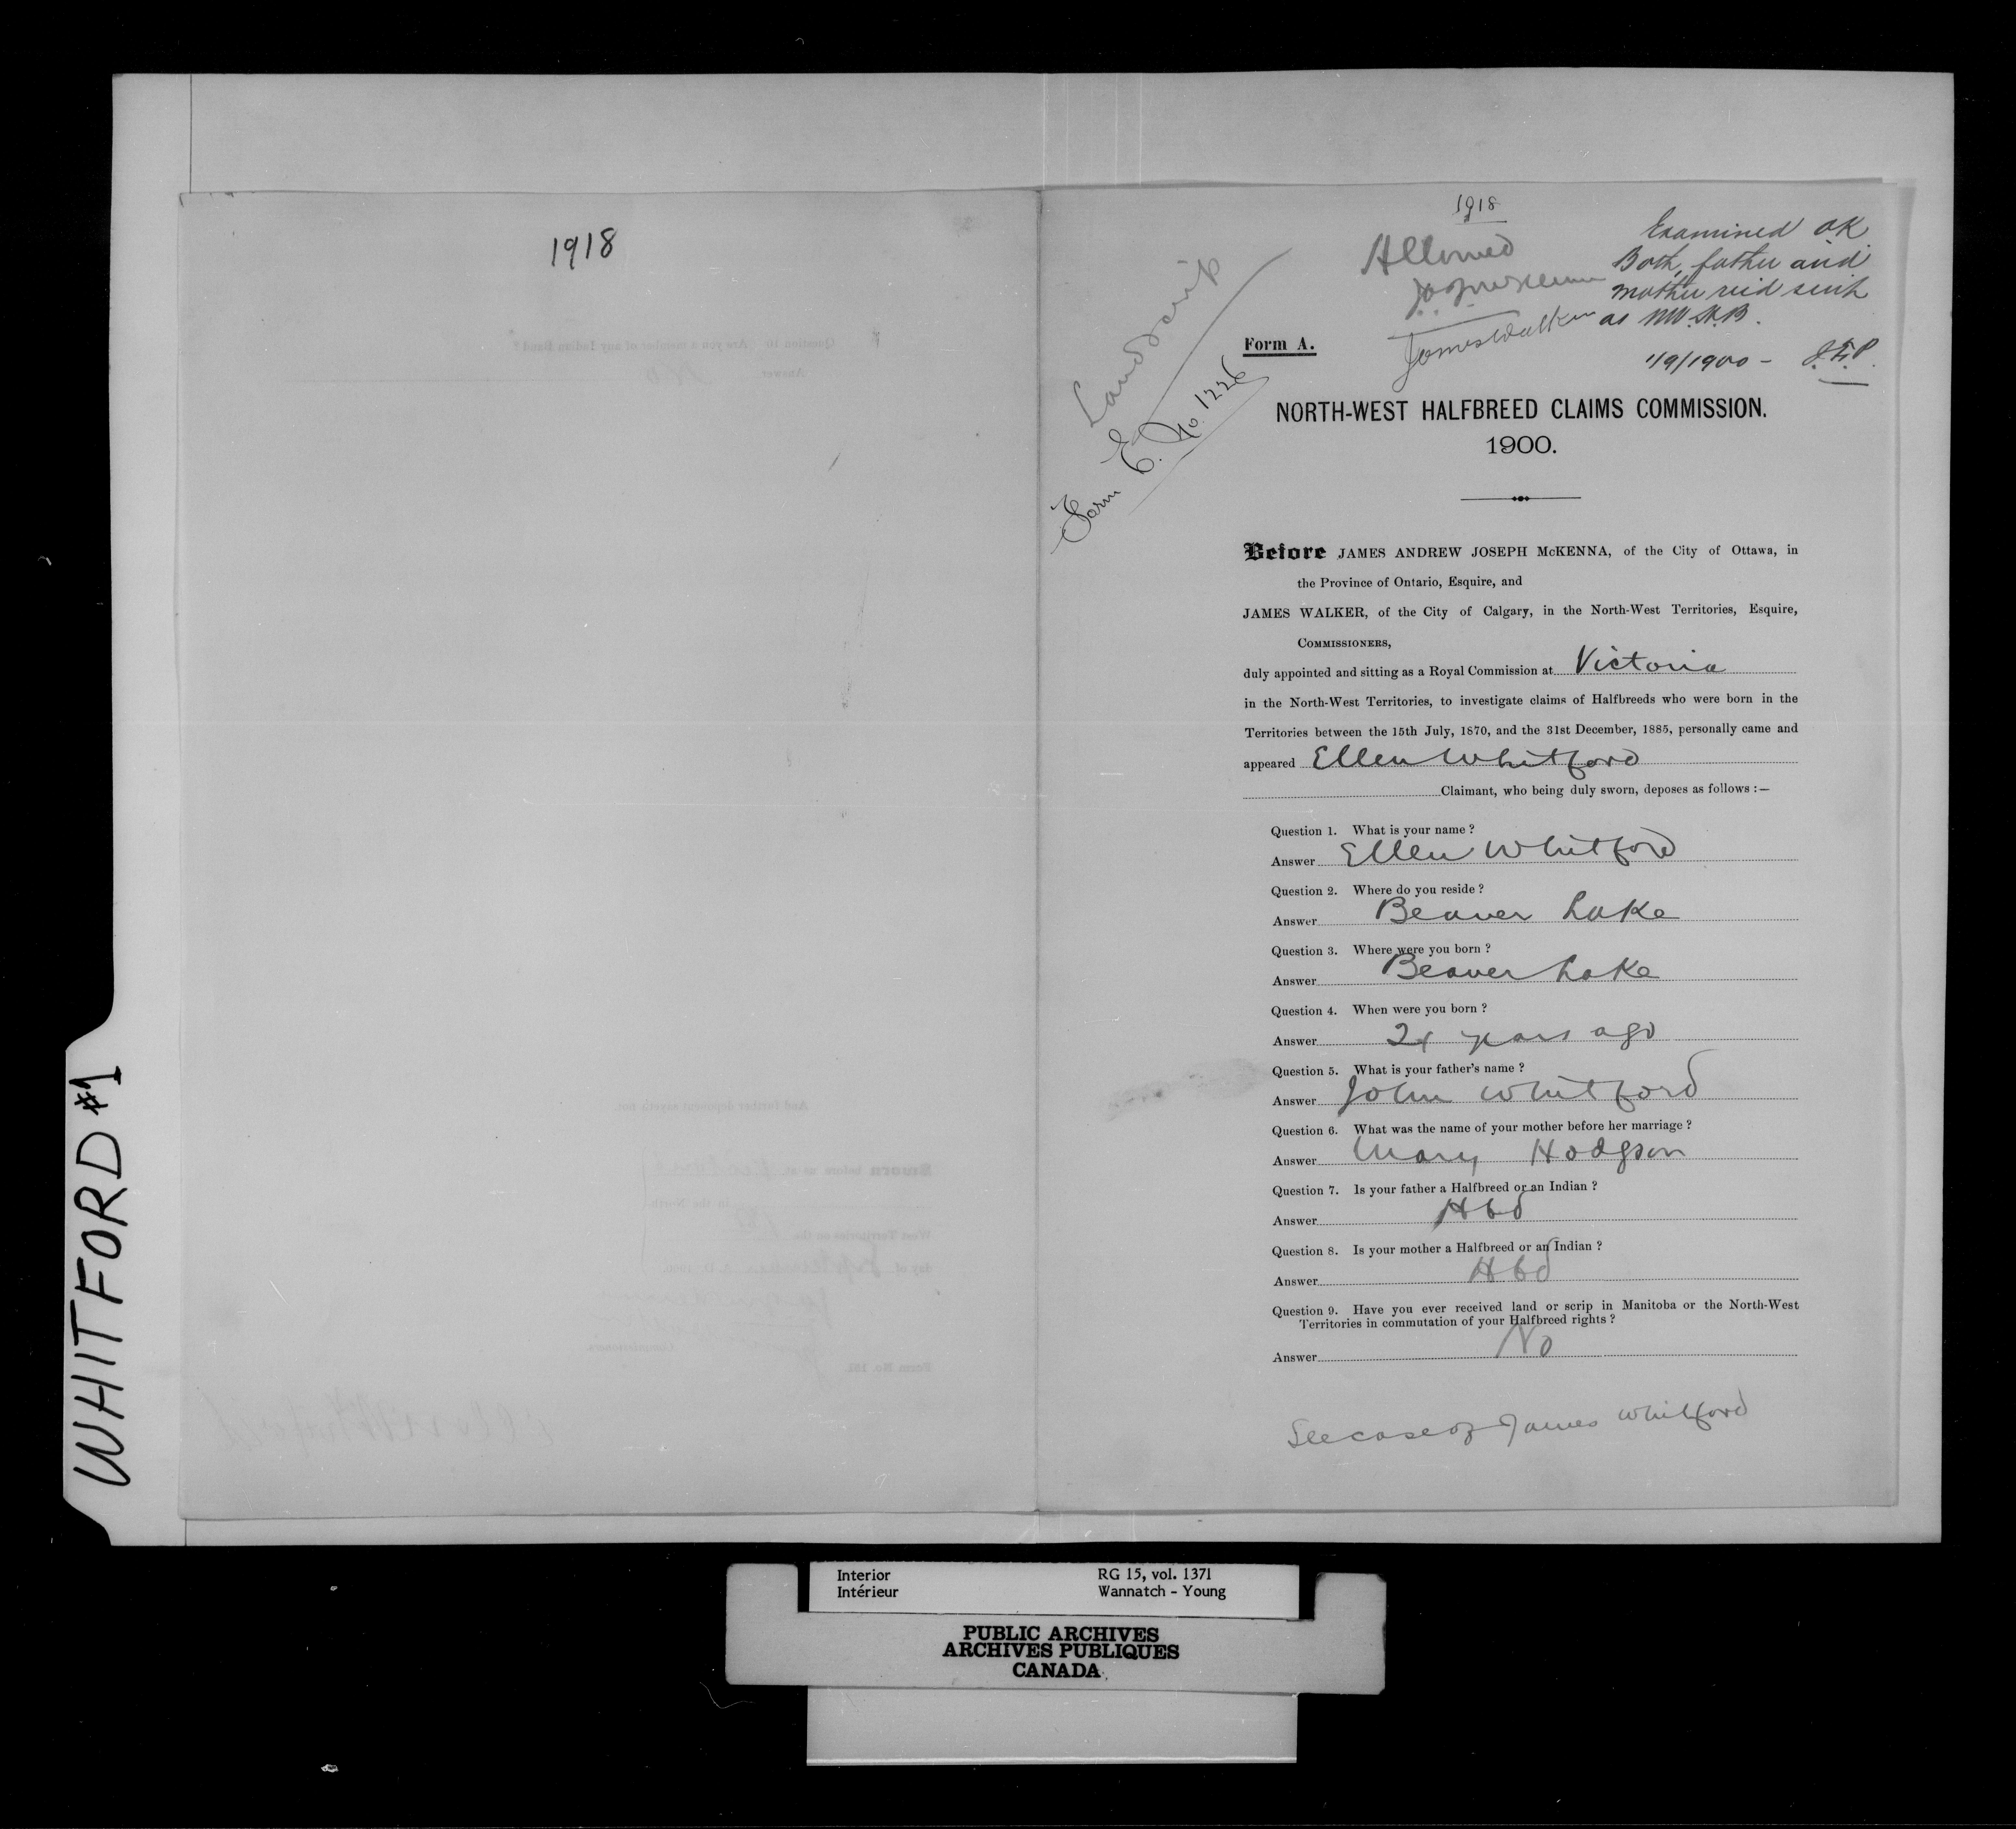 WHITFORD #1
1918
1918
Allowed
James Walker
Examined OK
Both father and
mother rec'd scrip
as NW.H.B.
1/9/1900 -
Land Scrip
Form E. No. 1226
Form A.
NORTH-WEST HALFBREED CLAIMS COMMISSION.
1900.
Before JAMES ANDREW JOSEPH McKENNA, of the City of Ottawa, in
the Province of Ontario, Esquire, and
JAMES WALKER, of the City of Calgary, in the North-West Territories, Esquire,
COMMISSIONERS,
duly appointed and sitting as a Royal Commission at Victoria
in the North-West Territories, to investigate claims of Halfbreeds who were born in the
Territories between the 15th July, 1870, and the 31st December, 1885, personally came and
appeared Ellen Whitford
Claimant, who being duly sworn, deposes as follows :—
Question 1. What is your name ?
Answer Ellen Whitford
Question 2. Where do you reside ?
Answer Beaver Lake
Question 3. Where were you born ?
Answer Beaver Lake
Question 4. When were you born ?
Answer years ago
Question 5. What is your father's name ?
Answer John Whitford
Question 6. What was the name of your mother before her marriage ?
Answer Mary Hodgson
Question 7. Is your father a Halfbreed or an Indian ?
Answer Hbd
Question 8. Is your mother a Halfbreed or an Indian ?
Answer Hbd
Question 9. Have you ever received land or scrip in Manitoba or the North-West
Territories in commutation of your Halfbreed rights ?
Answer No
See case of James Whitford
Interior RG 15, vol. 1371
Intérieur Wannatch - Young
PUBLIC ARCHIVES
ARCHIVES PUBLIQUES
CANADA